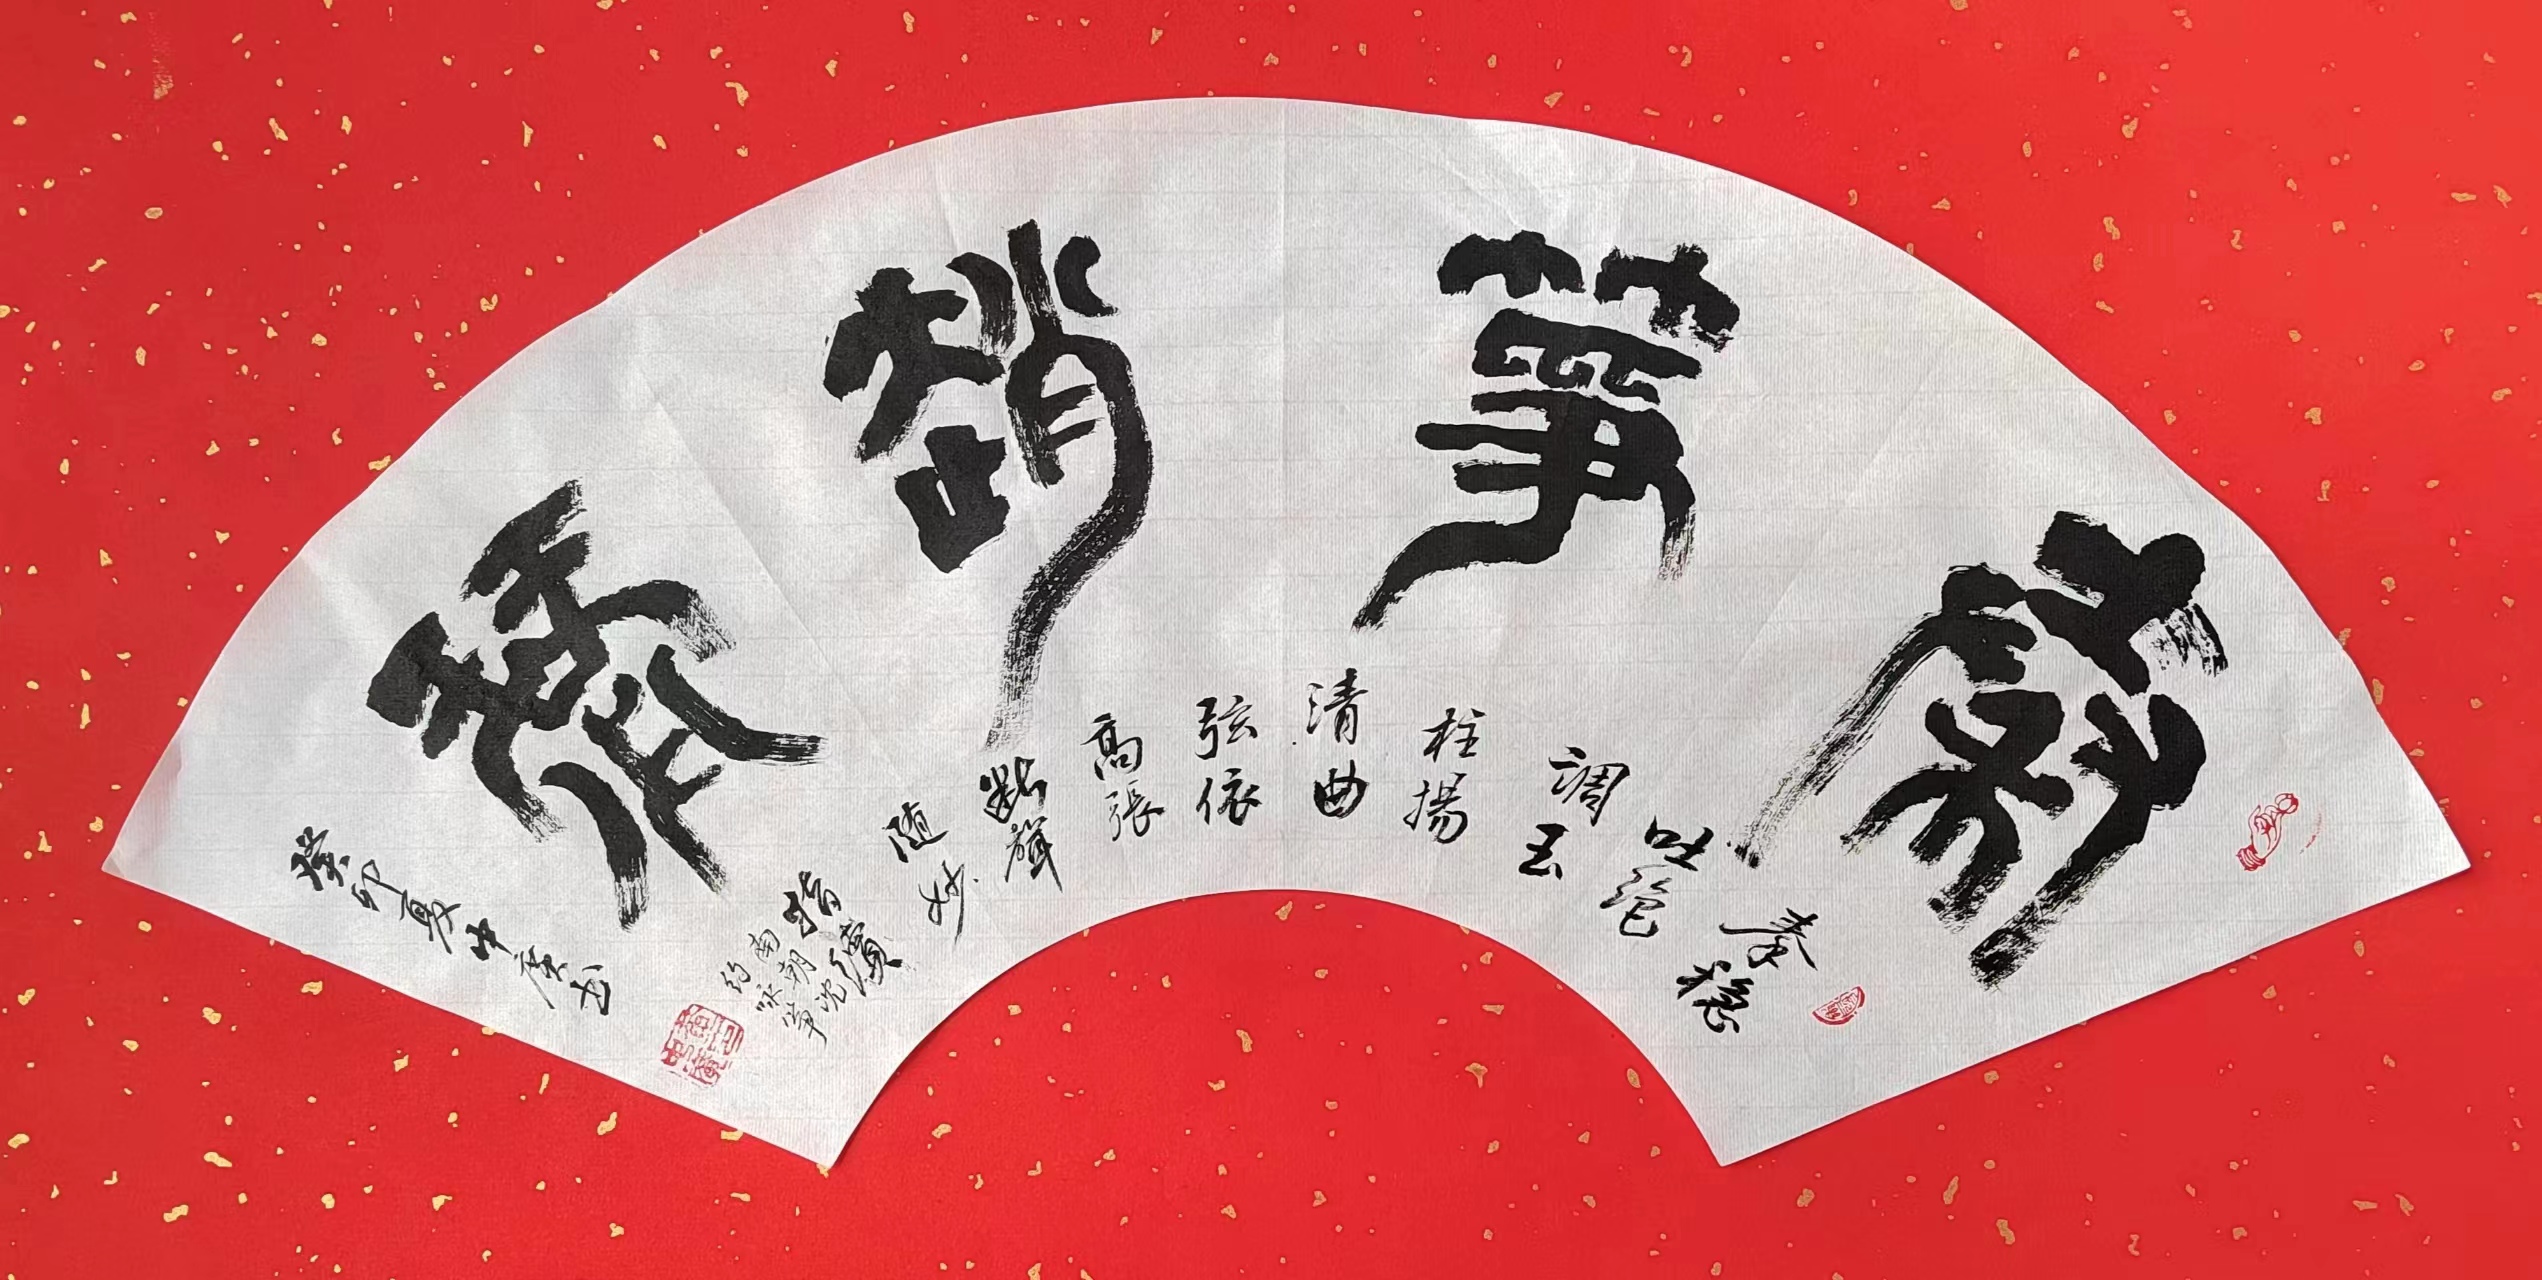 秦箏趙瑟
秦穩
吐絕
調玉
柱揚
清曲
弦依
高張
斷聲
随妙
指續
南朝沈
約咏筝
癸卯夏中